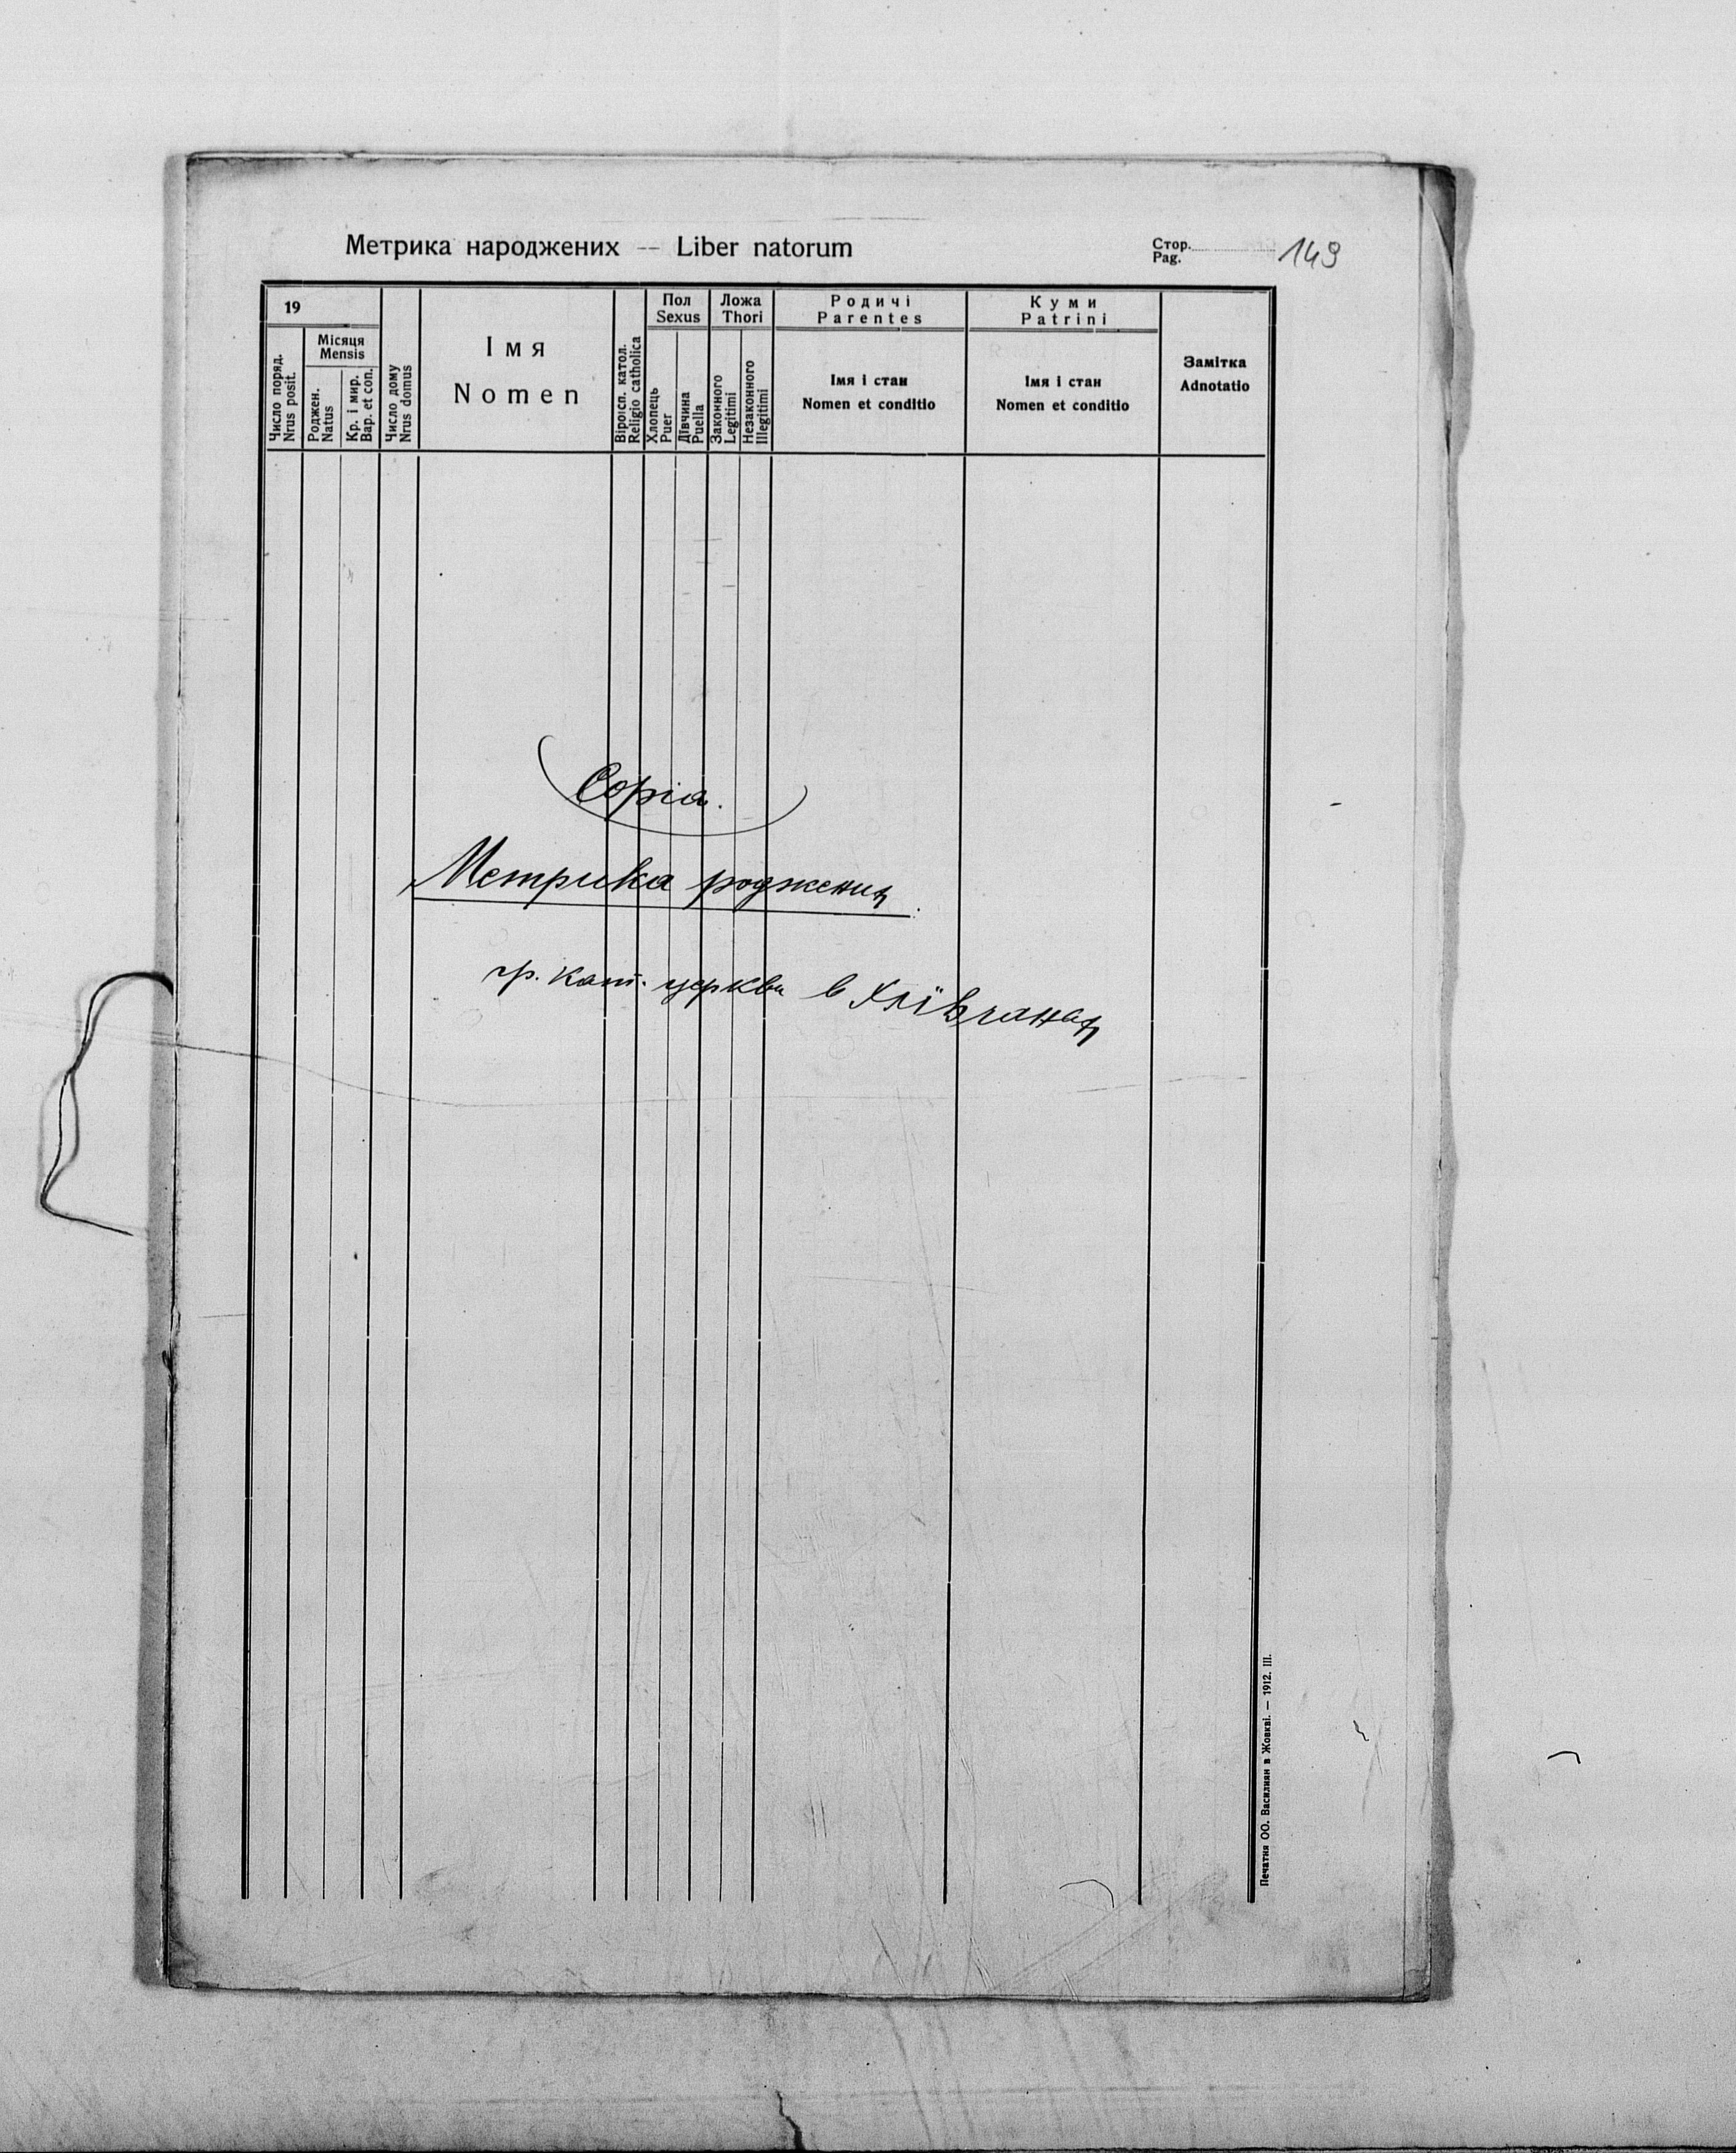 Метрика народжених — Liber natorum
Стор.
Pag.
149
19
Місяця
Mensis
Число поряд.
Nrus posit.
Роджен.
Natus
Кр. і мир.
Bap. et con.
Число дому
Nrus domus
Імя
Nomen
Віроісп. катол.
Religio catholica
Пол
Sexus
Хлопець
Puer
Дівчина
Puella
Ложа
Thori
Законного
Legitimi
Незаконного
Illegitimi
Родичі
Parentes
Імя і стан
Nomen et conditio
Куми
Patrini
Імя і стан
Nomen et conditio
Замітка
Adnotatio
Copia.
Метрика роджених
гр. кат. церкви в Хлївчанах
Печатня ОО. Василиян в Жовкві. — 1912. III.